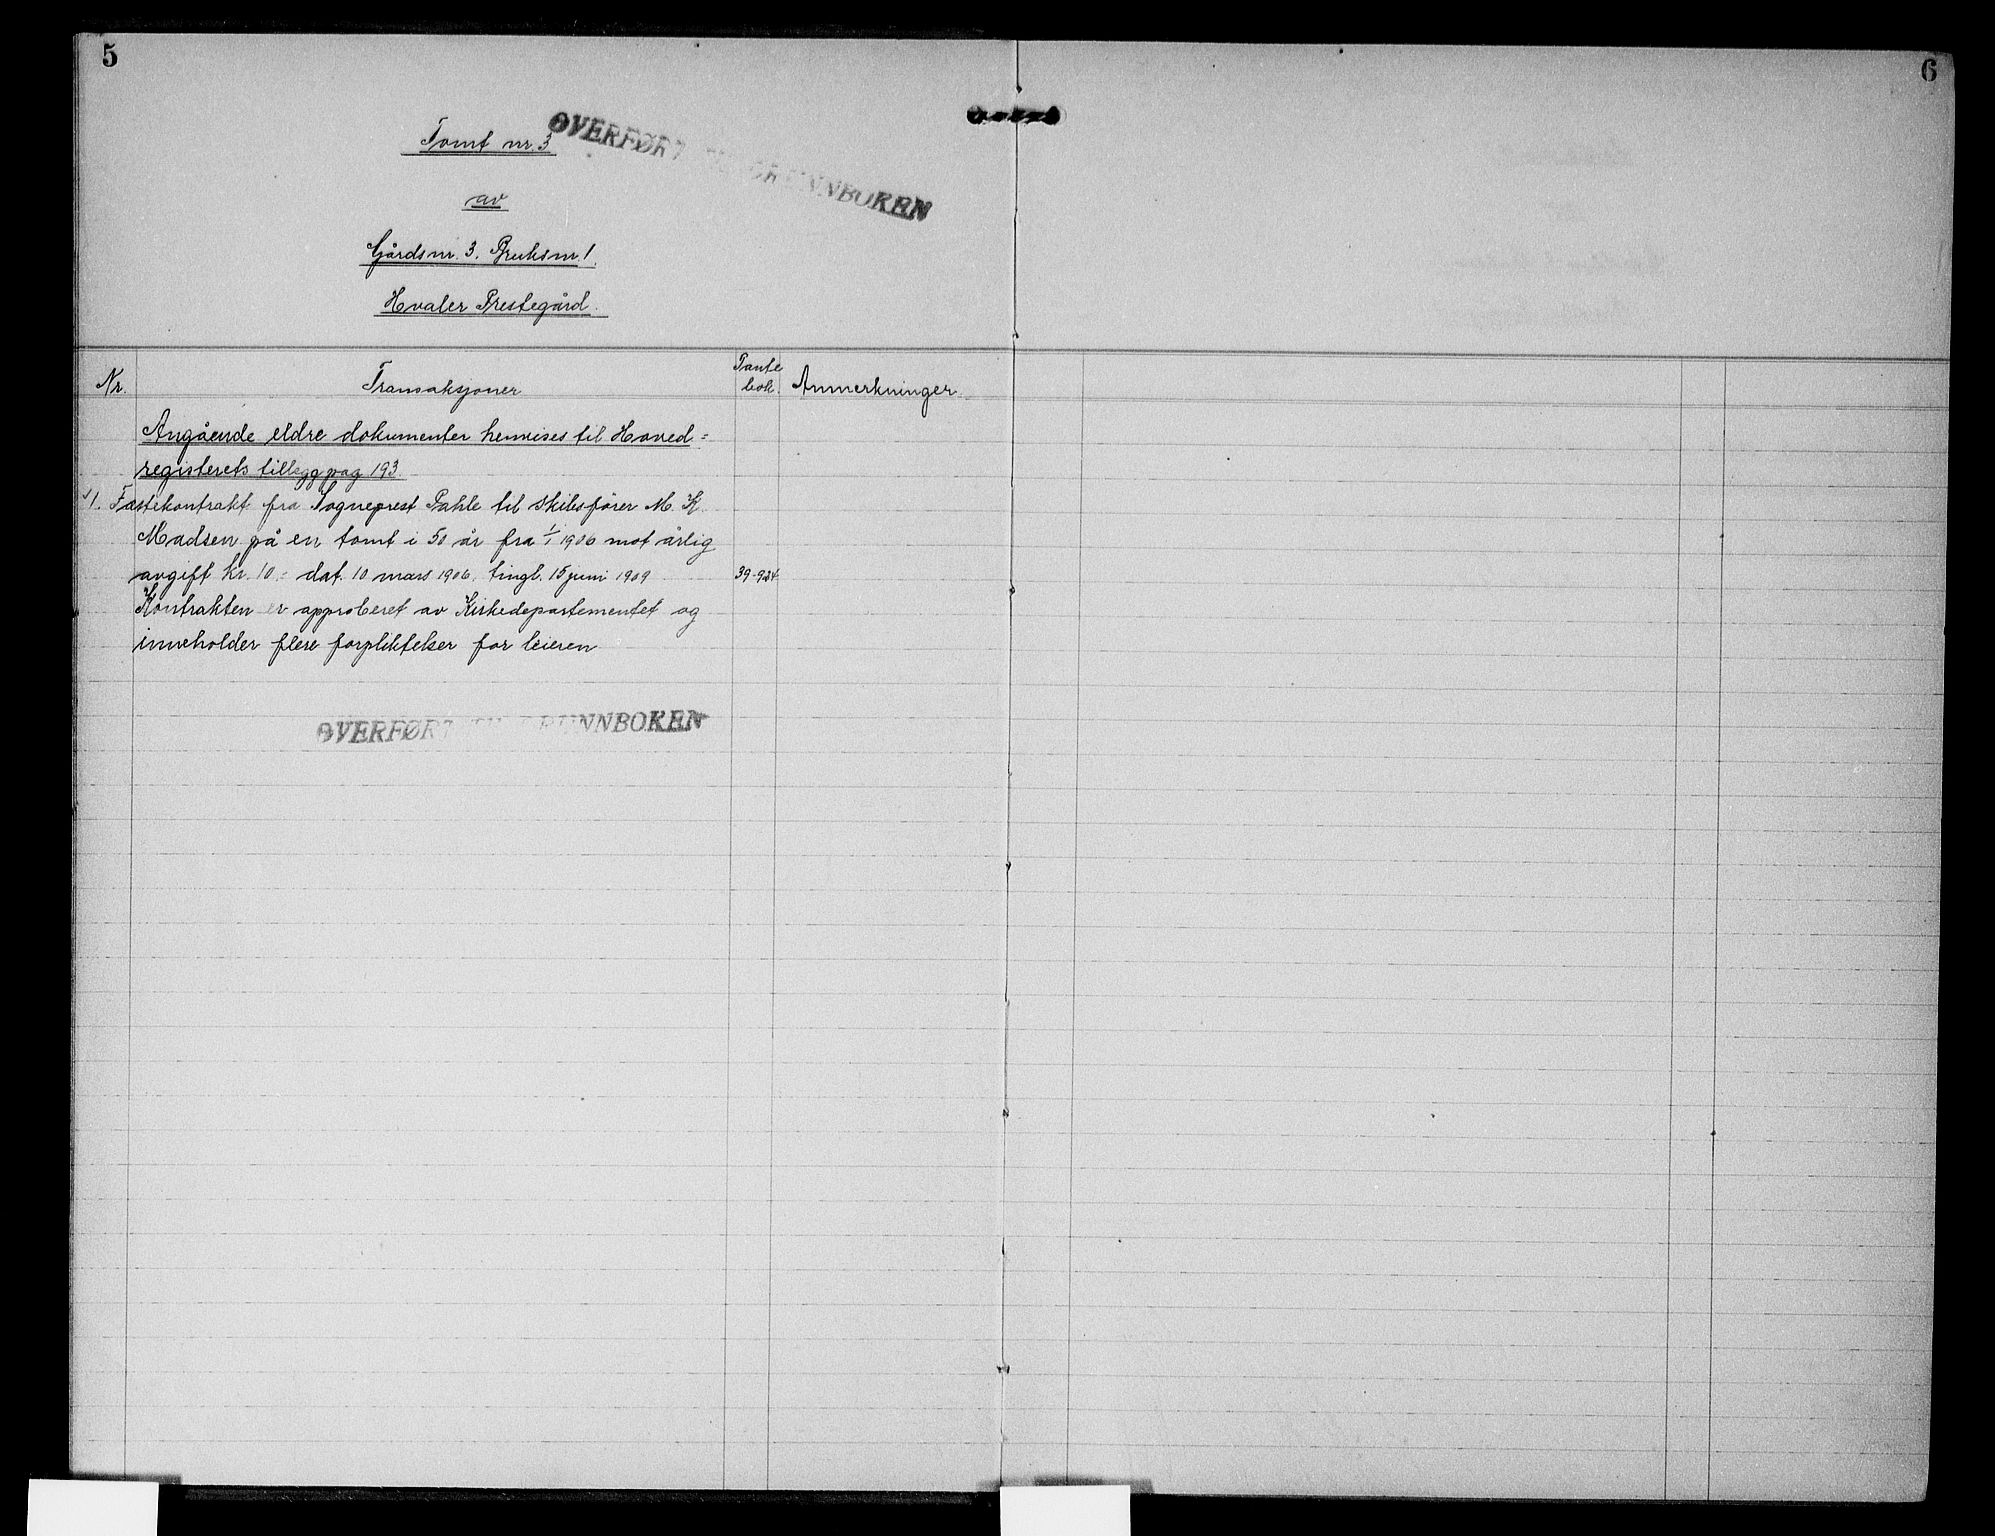 5
6
Tomt nr. 3
OVERFØRT TIL GRUNNBOKEN
av
Gårdsnr. 3. Bruksnr. 1.
Hvaler Prestegård.
Nr.
Transaksjoner
Pante
bok.
Anmerkninger
Angående eldre dokumenter henvises til Hoved=
registerets tillegg pag 193
1. Festekontrakt fra Sogneprest Pahle til skibsfører M. K.
Madsen på en tomt i 50 år fra 1/1 1906 mot årlig
avgift kr. 10,- dat. 10 mars 1906, tingl. 15 juni 1909
39-924
Kontrakten er approberet av Kirkedepartementet og
inneholder flere forpliktelser for leieren
OVERFØRT TIL GRUNNBOKEN